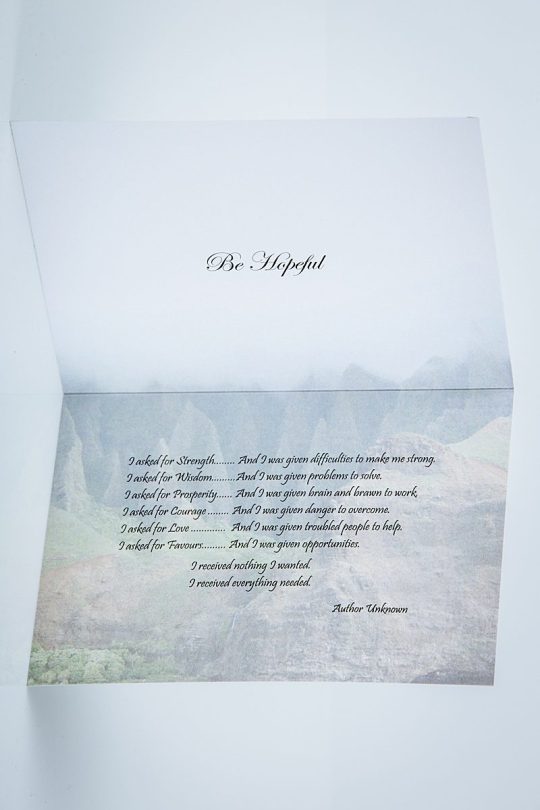 Be Hopeful
I asked for Strength........ And I was given difficulties to make me strong.
I asked for Wisdom.........And I was given problems to solve.
I asked for Prosperity...... And I was given brain and brawn to work,
I asked for Courage ........ And I was given danger to overcome.
I asked for Love ............. And I was given troubled people to help.
I asked for Favours......... And I was given opportunities.
I received nothing I wanted.
I received everything needed.
Author Unknown